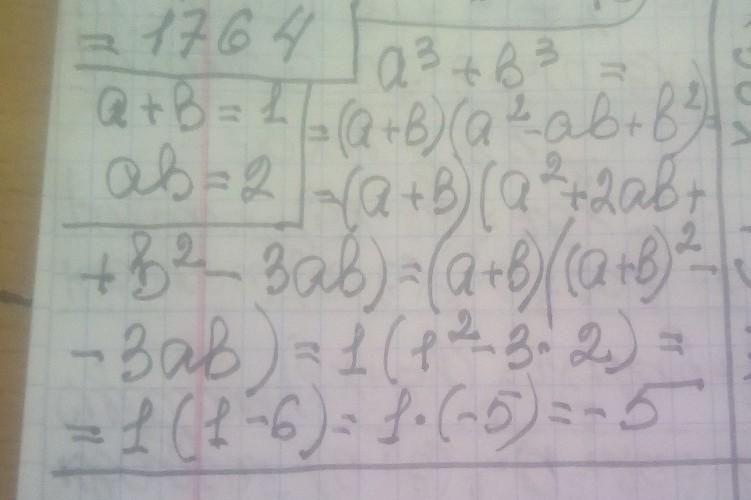 = 1764
a³ + b³ =
a + b = 1
ab = 2
= (a+b)(a² - ab + b²) =
= (a+b)(a² + 2ab +
+ b² - 3ab) = (a+b)((a+b)² -
- 3ab) = 1(1² - 3· 2) =
= 1(1-6) = 1·(-5) = -5